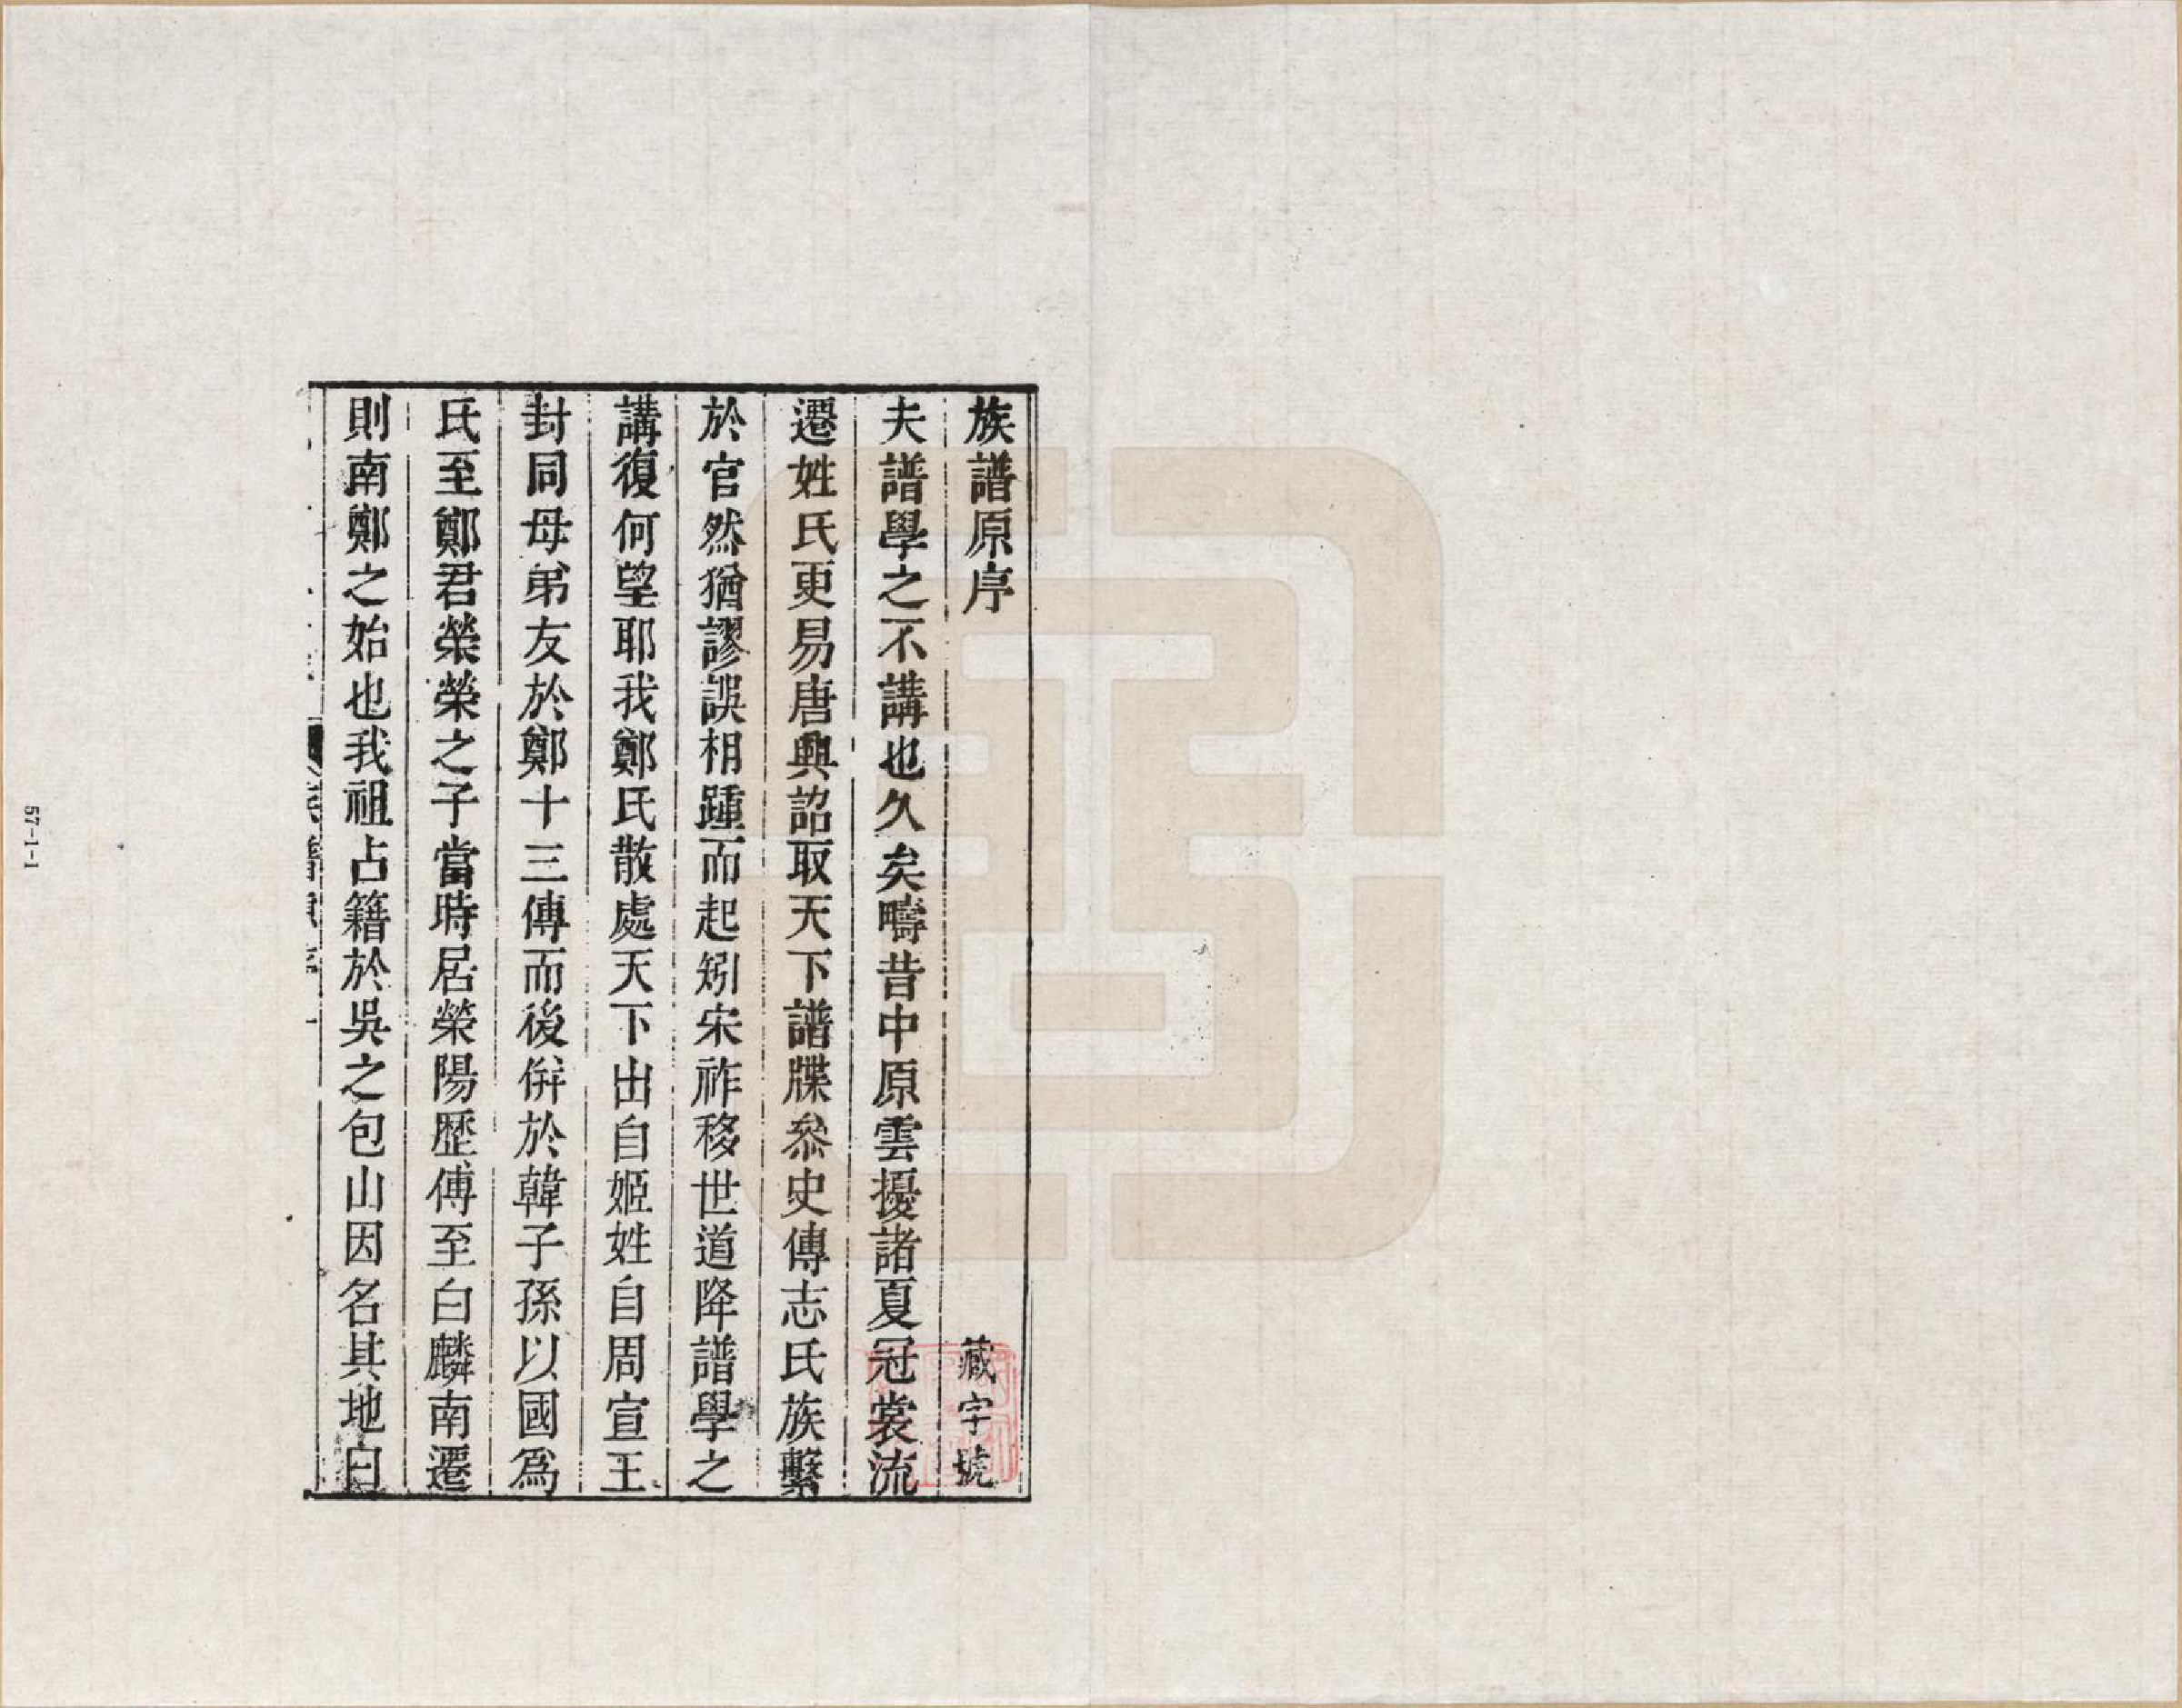 族譜原序
藏字號
夫譜學之不講也久矣疇昔中原雲擾諸夏冠裳流
遷姓氏更易唐興詔取天下譜牒叅史傳志氏族繫
於官然猶謬誤相踵而起矧宋祚移世道降譜學之
講復何望耶我鄭氏散處天下出自姬姓自周宣王
封同母弟友於鄭十三傳而後併於韓子孫以國爲
氏至鄭君榮榮之子當時居榮陽歷傳至白麟南遷
則南鄭之始也我祖占籍於吳之包山因名其地曰
57-1-1